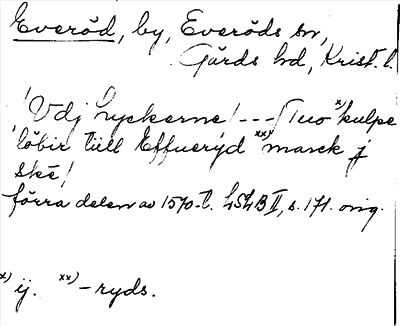 Everöd, by, Everöds sn,
Gärds hd, Krist. l.
/Vdj hyckerne/ --- / Tuo x) kulpe
löbir till Effueryd xx) marck j
skë/
förra delen av 1570-t. LSLB II, s. 171. orig.
x) ij. xx) -ryds.